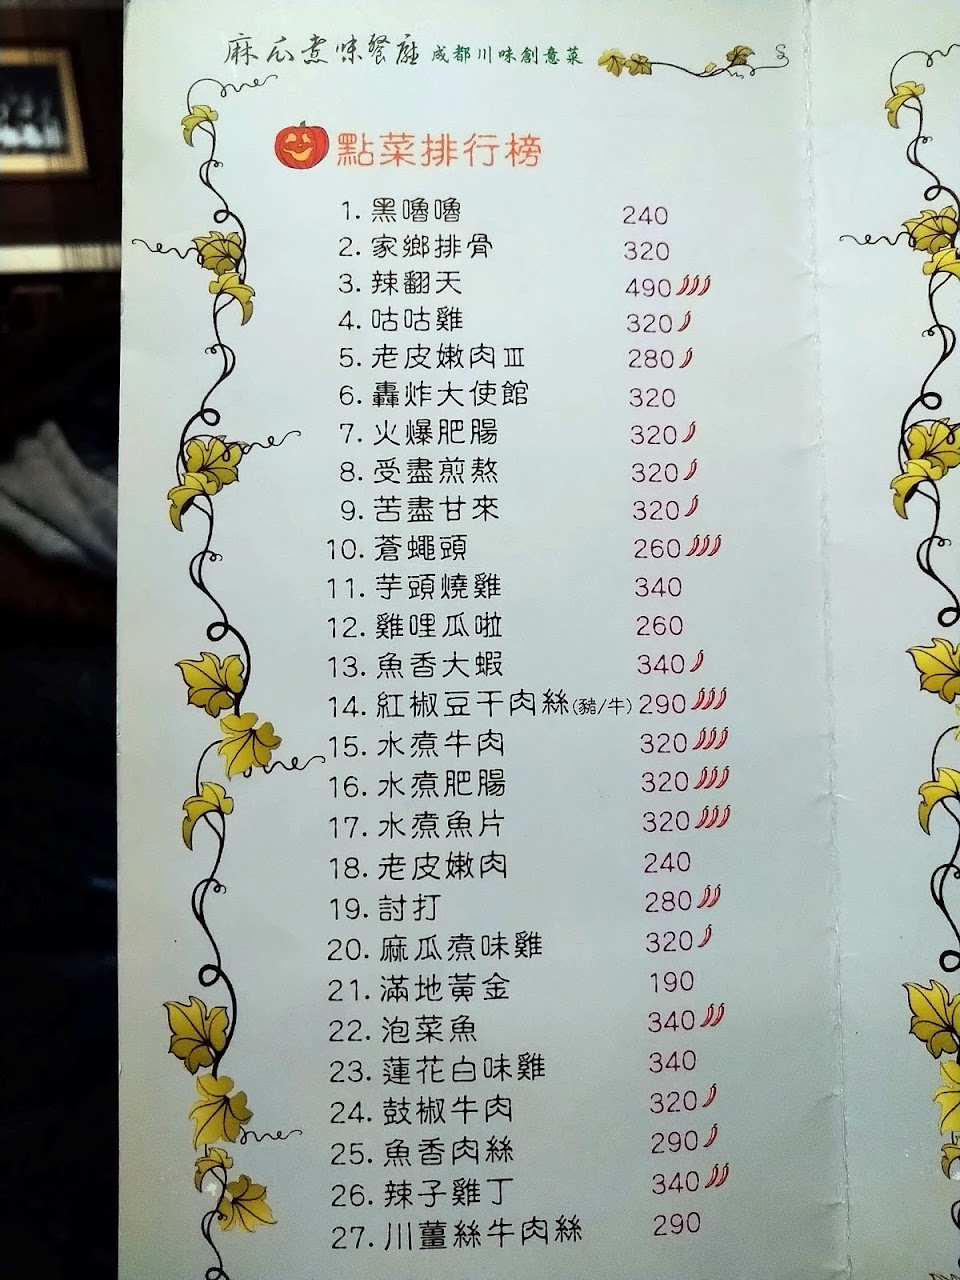 麻瓜煮味餐廳 成都川味創意菜
點菜排行榜
1. 黑嚕嚕 240
2. 家鄉排骨 320
3. 辣翻天 490
4. 咕咕雞 320
5. 老皮嫩肉Ⅲ 280
6. 轟炸大使館 320
7. 火爆肥腸 320
8. 受盡煎熬 320
9. 苦盡甘來 320
10. 蒼蠅頭 260
11. 芋頭燒雞 340
12. 雞哩瓜啦 260
13. 魚香大蝦 340
14. 紅椒豆干肉絲(豬/牛) 290
15. 水煮牛肉 320
16. 水煮肥腸 320
17. 水煮魚片 320
18. 老皮嫩肉 240
19. 討打 280
20. 麻瓜煮味雞 320
21. 滿地黃金 190
22. 泡菜魚 340
23. 蓮花白味雞 340
24. 鼓椒牛肉 320
25. 魚香肉絲 290
26. 辣子雞丁 340
27. 川薑絲牛肉絲 290